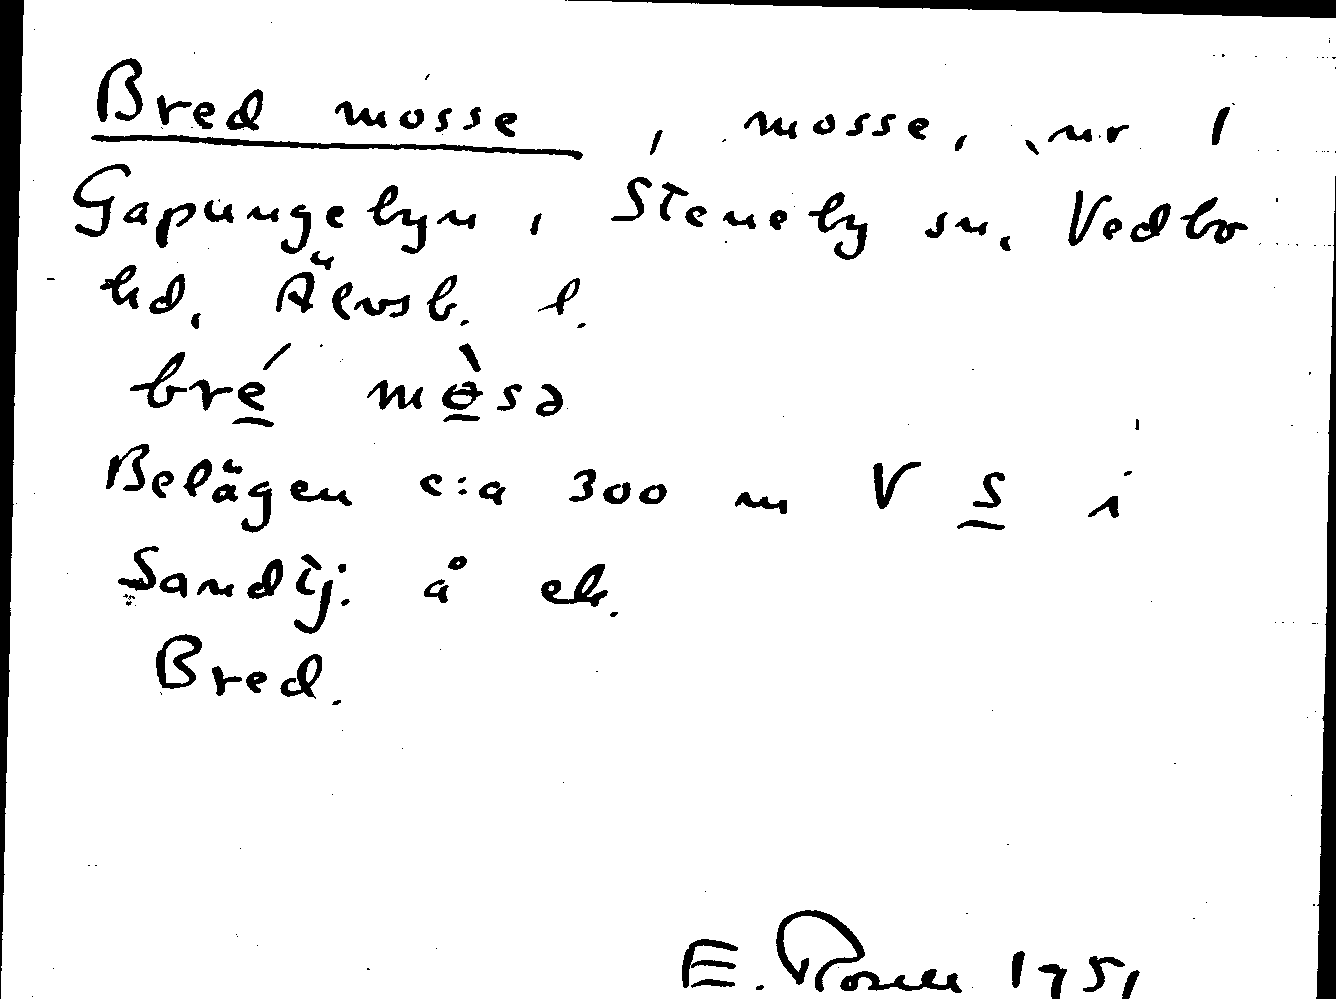 Bred mosse, mosse, nr 1
Gapungebyn, Steneby sn, Vedbo
hd, Älvsb. l.
bré̱ mɵ̱̀sə
Belägen c:a 300 m V S̲ i
Sandtj. å ek.
Bred.
E. Rosell 1951